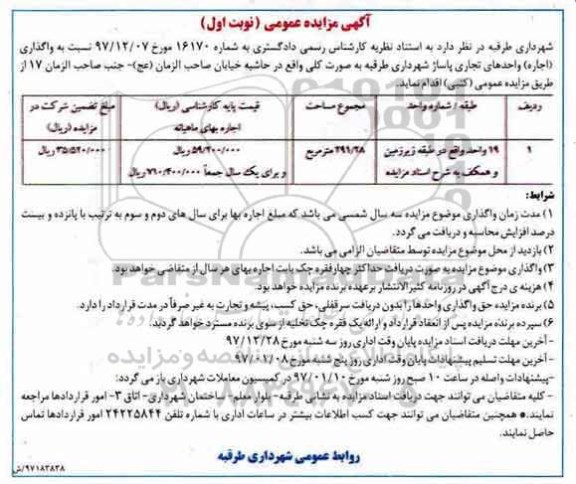 آگهی مزایده عمومی (نوبت اول)
شهرداری طرقبه در نظر دارد به استناد نظریه کارشناس رسمی دادگستری به شماره ۱۶۱۷۰ مورخ ۹۷/۱۲/۰۷ نسبت به واگذاری
(اجاره) واحدهای تجاری پاساژ شهرداری طرقبه به صورت کلی واقع در حاشیه خیابان صاحب الزمان (عج)- جنب صاحب الزمان ۱۷ از
طریق مزایده عمومی (کتبی) اقدام نماید.
ردیف طبقه / شماره واحد مجموع مساحت قیمت پایه کارشناسی (ریال) اجاره بهای ماهیانه مبلغ تضمین شرکت در مزایده (ریال)
۱ ۱۹ واحد واقع در طبقه زیرزمین و همکف به شرح اسناد مزایده ۲۹۱/۲۸ مترمربع ۵۹/۲۰۰/۰۰۰ ریال و برای یک سال جمعاً ۷۱۰/۴۰۰/۰۰۰ ریال ۳۵/۵۲۰/۰۰۰ ریال
شرایط:
۱) مدت زمان واگذاری موضوع مزایده سه سال شمسی می باشد که مبلغ اجاره بها برای سال های دوم و سوم به ترتیب با پانزده و بیست
درصد افزایش محاسبه و دریافت می گردد.
۲) بازدید از محل موضوع مزایده توسط متقاضیان الزامی می باشد.
۳) واگذاری موضوع مزایده به صورت دریافت حداکثر چهار فقره چک بابت اجاره بهای هر سال از متقاضی خواهد بود.
۴) هزینه ی درج آگهی در روزنامه کثیرالانتشار بر عهده برنده مزایده خواهد بود.
۵) برنده مزایده حق واگذاری واحدها را بدون دریافت سرقفلی، حق کسب، پیشه و تجارت به غیر صرفاً در مدت قرارداد را دارد.
۶) سپرده برنده مزایده پس از انعقاد قرارداد و ارائه یک فقره چک تخلیه از سوی برنده مسترد خواهد گردید.
- آخرین مهلت دریافت اسناد مزایده پایان وقت اداری روز سه شنبه مورخ ۹۷/۱۲/۲۸
- آخرین مهلت تسلیم پیشنهادات پایان وقت اداری روز پنج شنبه مورخ ۹۷/۰۱/۰۸
-پیشنهادات واصله در ساعت ۱۰ صبح روز شنبه مورخ ۹۷/۰۱/۱۰ در کمیسیون معاملات شهرداری باز می گردد:
- کلیه متقاضیان می توانند جهت دریافت اسناد مزایده به نشانی طرقبه- بلوار معلم- ساختمان شهرداری- اتاق ۳- امور قراردادها مراجعه
نمایند. • همچنین متقاضیان می توانند جهت کسب اطلاعات بیشتر در ساعات اداری با شماره تلفن ۳۴۲۲۵۸۴۴ امور قراردادها تماس
حاصل نمایند.
روابط عمومی شهرداری طرقبه
۹۷۱۸۳۸۳۸/ش